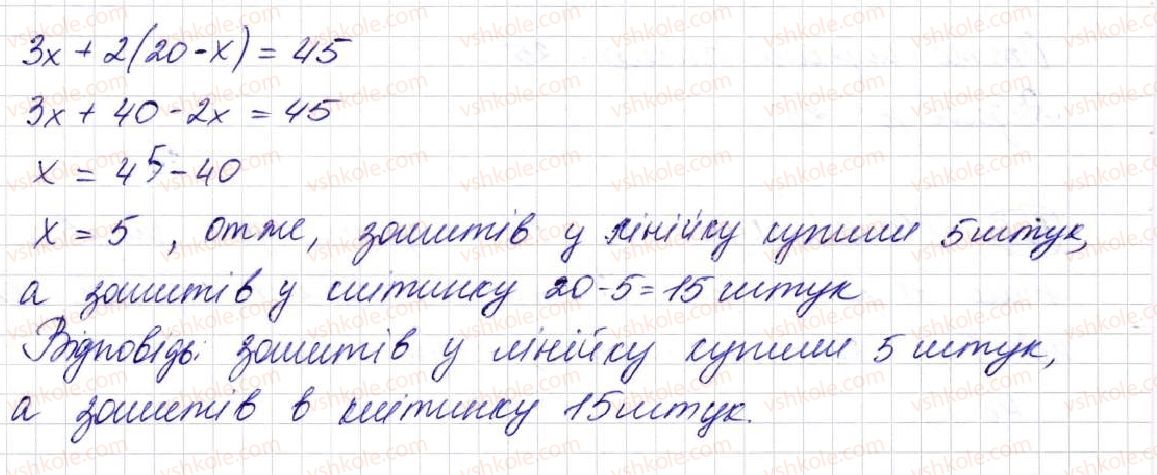 3x + 2(20 - x) = 45
3x + 40 - 2x = 45
x = 45 - 40
x = 5 , отже, зошитів у лінійку купили 5 штук,
а зошитів у клітинку 20 - 5 = 15 штук
Відповідь: зошитів у лінійку купили 5 штук,
а зошитів в клітинку 15 штук.